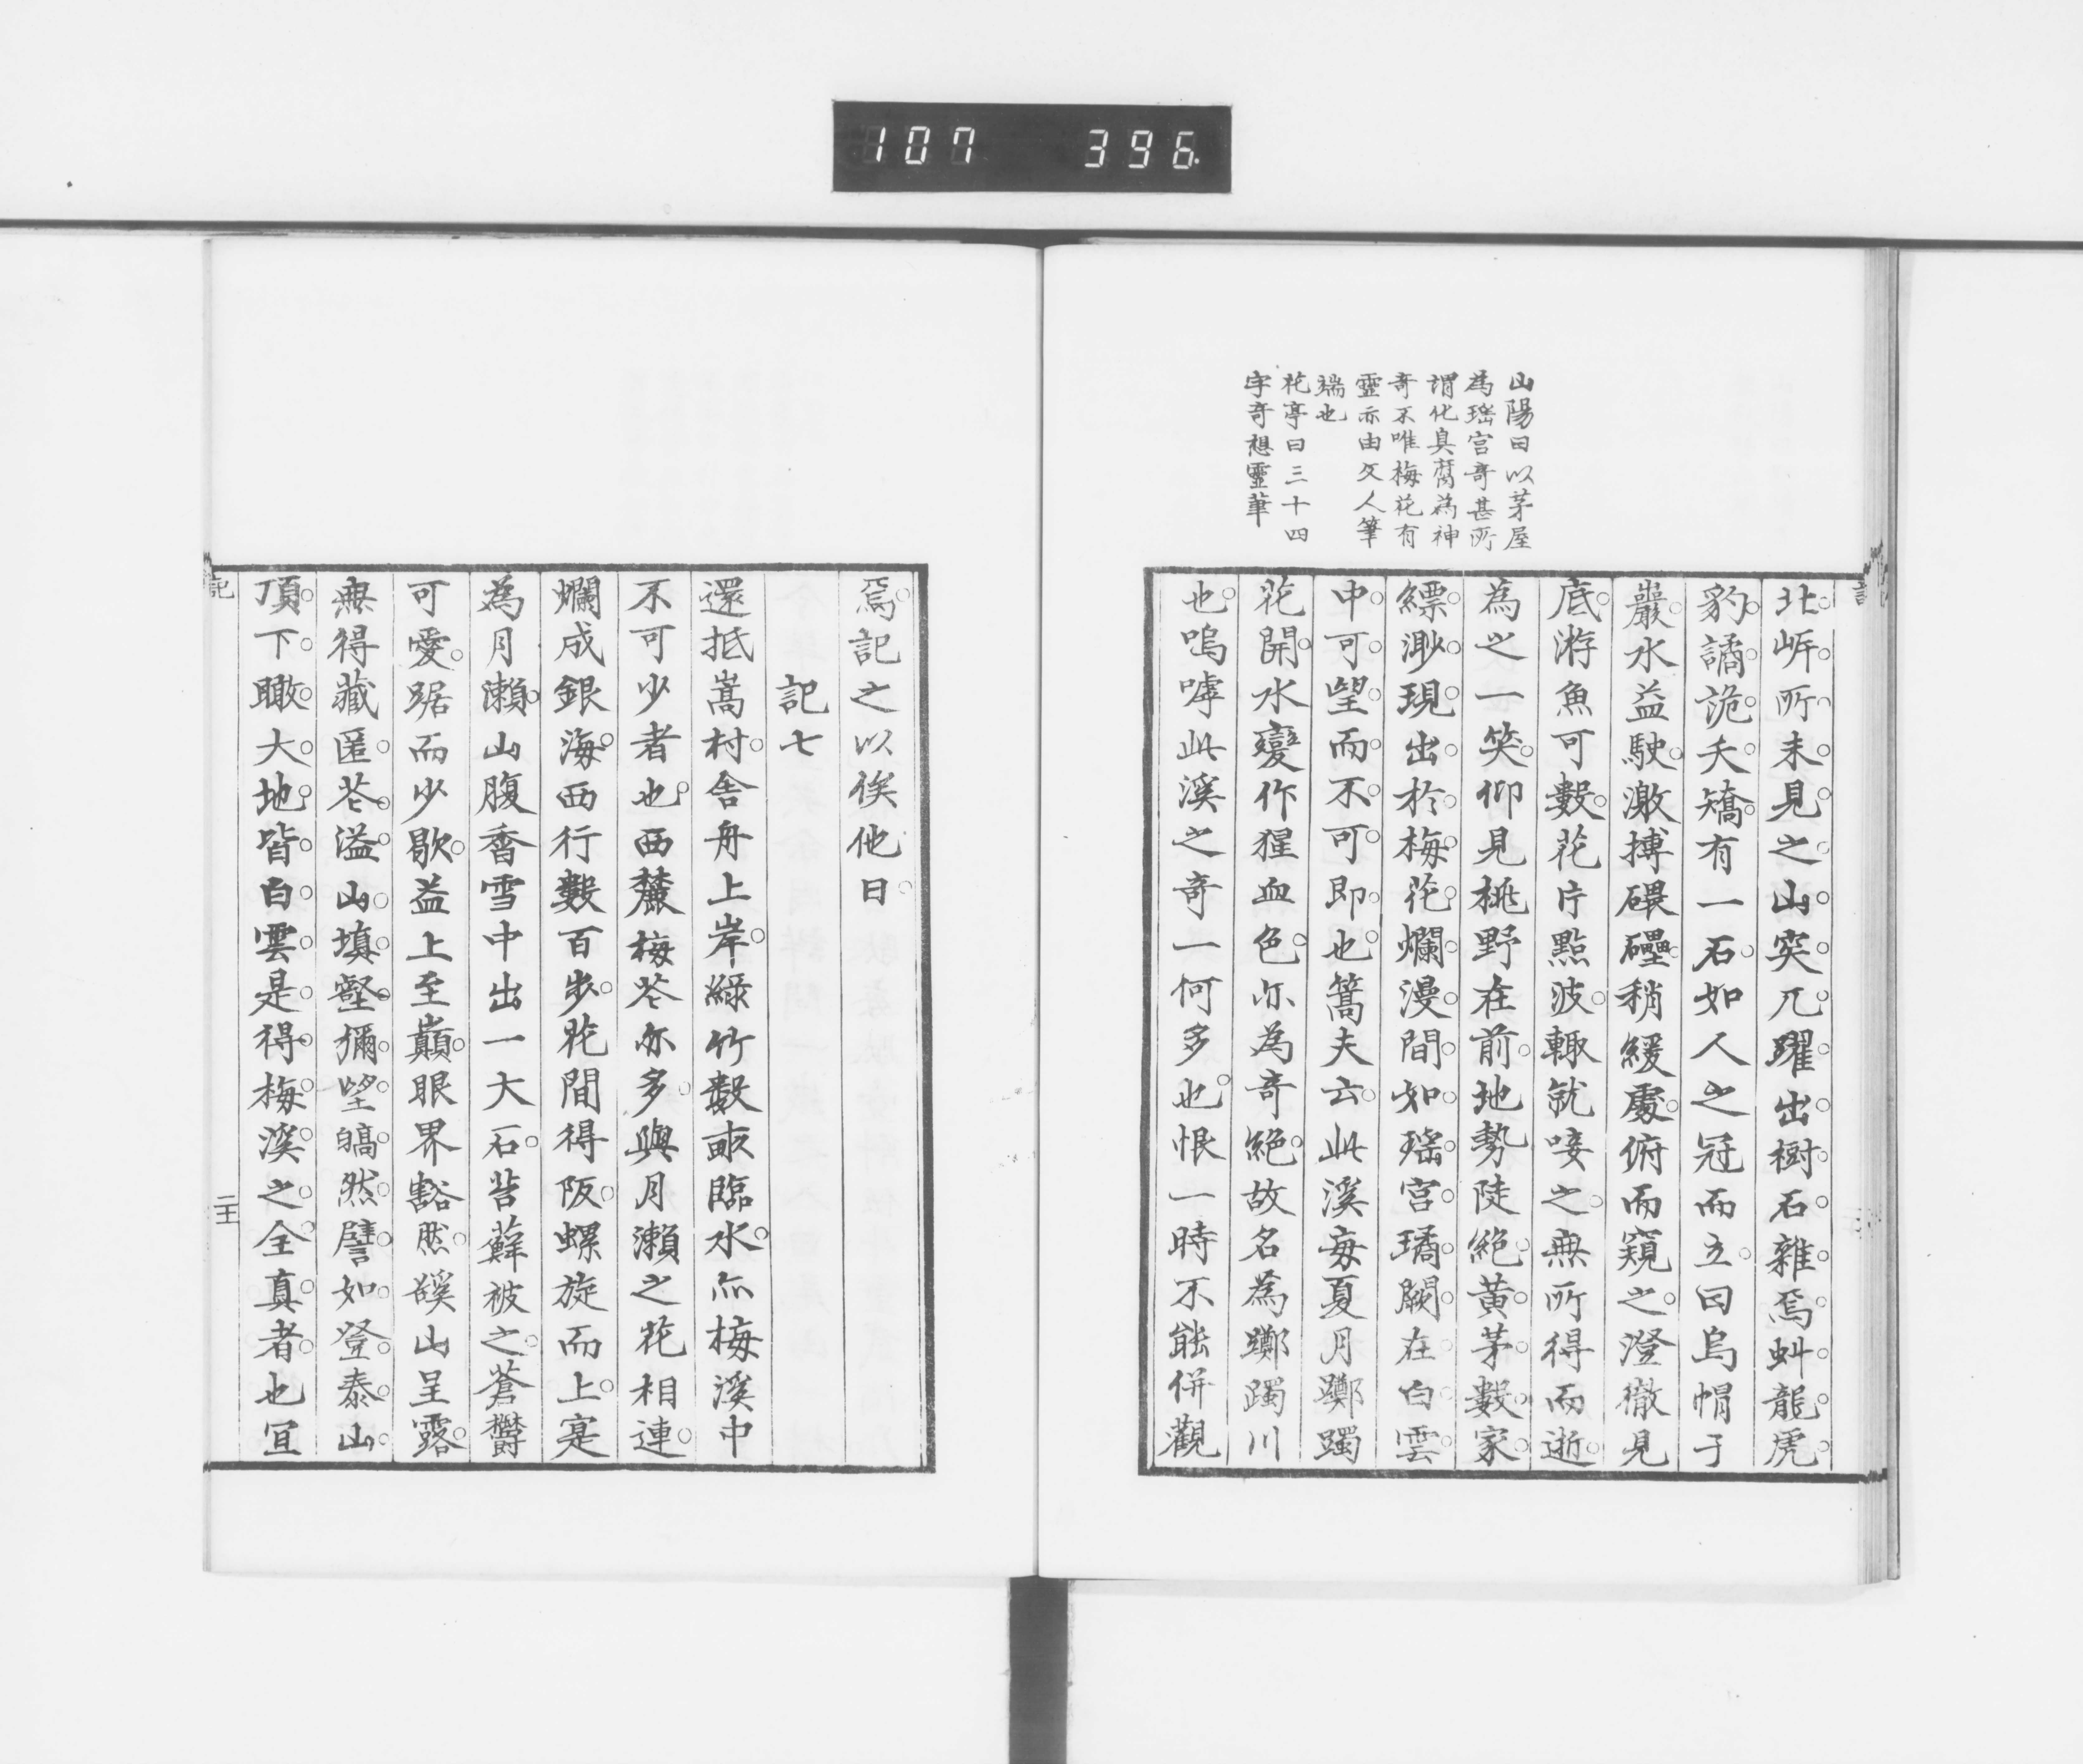 107 396
山陽曰以茅屋
為瑤宮奇甚所
謂化臭腐為神
奇不唯梅花有
靈亦由文人筆
端也
花亭曰三十四
字奇想靈筆
北岍所未見之山突兀躍出樹石雜焉虯龍虎
豹譎詭夭矯有一石如人之冠而立曰烏帽子
巖水益駛激搏礧稍緩處俯而窺之澄徹見
底游魚可數花片點波輒就唼之無所得而逝
為之一笑仰見桃野在前地勢陡絶黃茅數家
縹渺現出於梅花爛漫間如瑤宮璚闕在白雲
中可望而不可即也篙夫云此溪每夏月躑躅
花開水變作猩血色亦為奇絶故名為躑躅川
也嗚嘑此溪之奇一何多也恨一時不能併觀
焉記之以俟他日
記七
還抵嵩村舎舟上岸綠竹數畝臨水亦梅溪中
不可少者也西麓梅花亦多與月瀨之花相連
爛成銀海西行數百步花間得阪螺旋而上寔
為月瀨山腹香雪中出一大石苔蘚被之蒼欝
可愛踞而少歇益上至巔眼界豁然谿山呈露
無得藏匿花溢山填壑彌望皜然譬如登泰山
頂下瞰大地皆白雲是得梅溪之全真者也宜
記
二十